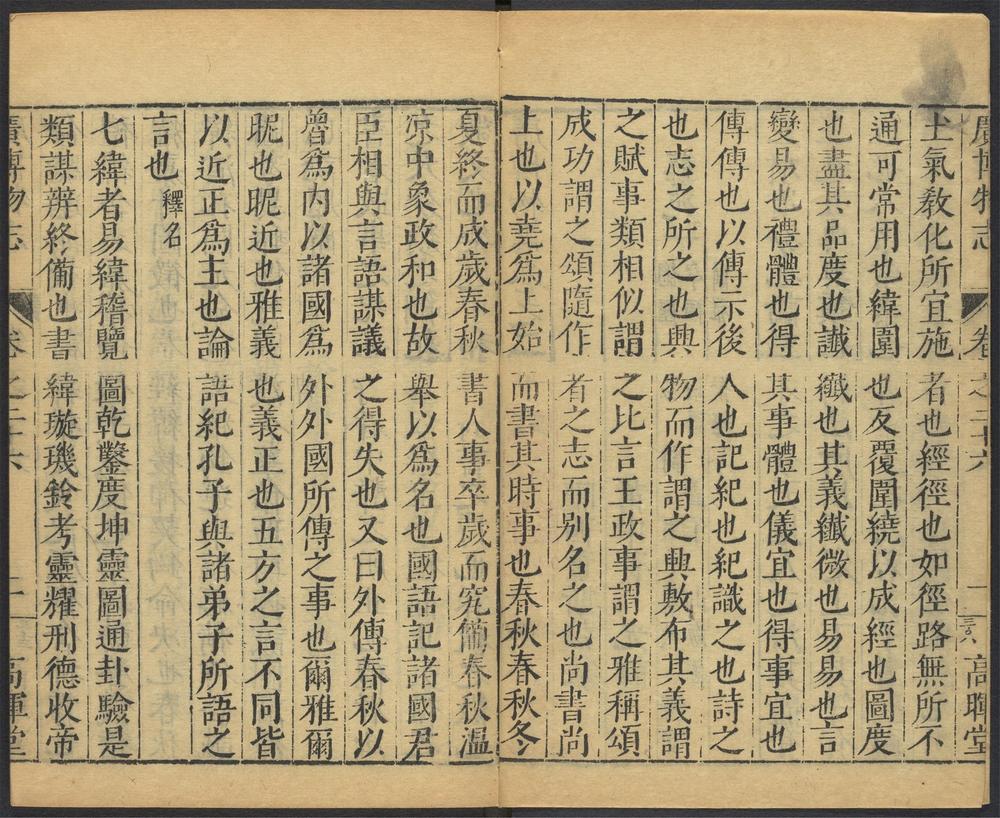 廣博物志 卷之二十六 一 高暉堂
土氣敎化所宜施者也經徑也如徑路無所不
通可常用也緯圍也反覆圍繞以成經也圖度
也盡其品度也讖纖也其義纖微也易易也言
變易也禮體也得其事體也儀宜也得事宜也
傳傳也以傳示後人也記紀也紀識之也詩之
也志之所之也興物而作謂之興敷布其義謂
之賦事類相似謂之比言王政事謂之雅稱頌
成功謂之頌隨作者之志而别名之也尚書尚
上也以堯爲上始而書其時事也春秋春秋冬
夏終而成歲春秋書人事卒歲而究備春秋溫
凉中象政和也故舉以爲名也國語記諸國君
臣相與言語謀議之得失也又曰外傳春秋以
魯爲内以諸國爲外外國所傳之事也爾雅爾
昵也昵近也雅義也義正也五方之言不同皆
以近正爲主也論語紀孔子與諸弟子所語之
言也 釋名
七緯者易緯稽覽圖乾鑿度坤靈圖通卦驗是
類謀辨終備也書緯璇璣鈐考靈耀刑德收帝
廣博物志 卷之二十六 二 高暉堂